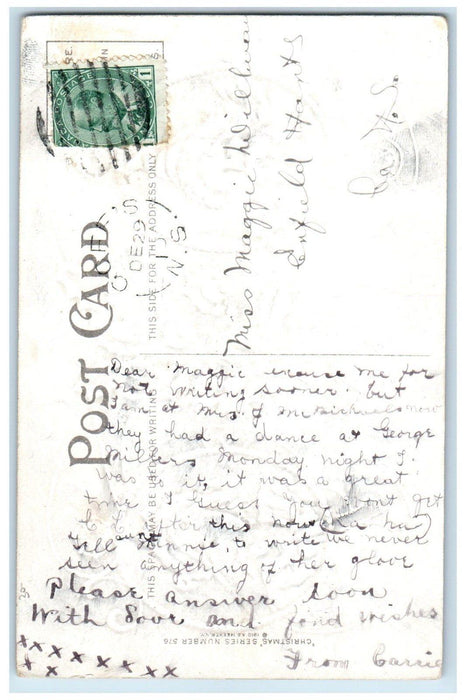 POST CARD
THIS SPACE MAY BE USED FOR WRITING
THIS SIDE FOR THE ADDRESS ONLY
DE 29
N.S.
1
Miss Maggie
Enfield Hants
Co N.S.
Dear Maggie excuse me for
not writing sooner but
I am at Mrs. J McMichaels now
they had a dance at George
Millers Monday night I
was at it, it was a great
time I Guess you wont get
after this now ha ha
Tell aunt Minnie to write we never
seen anything of her glove
Please answer soon
With Love and fond wishes
From Carrie
x x x x x x x
x x
CHRISTMAS SERIES 576